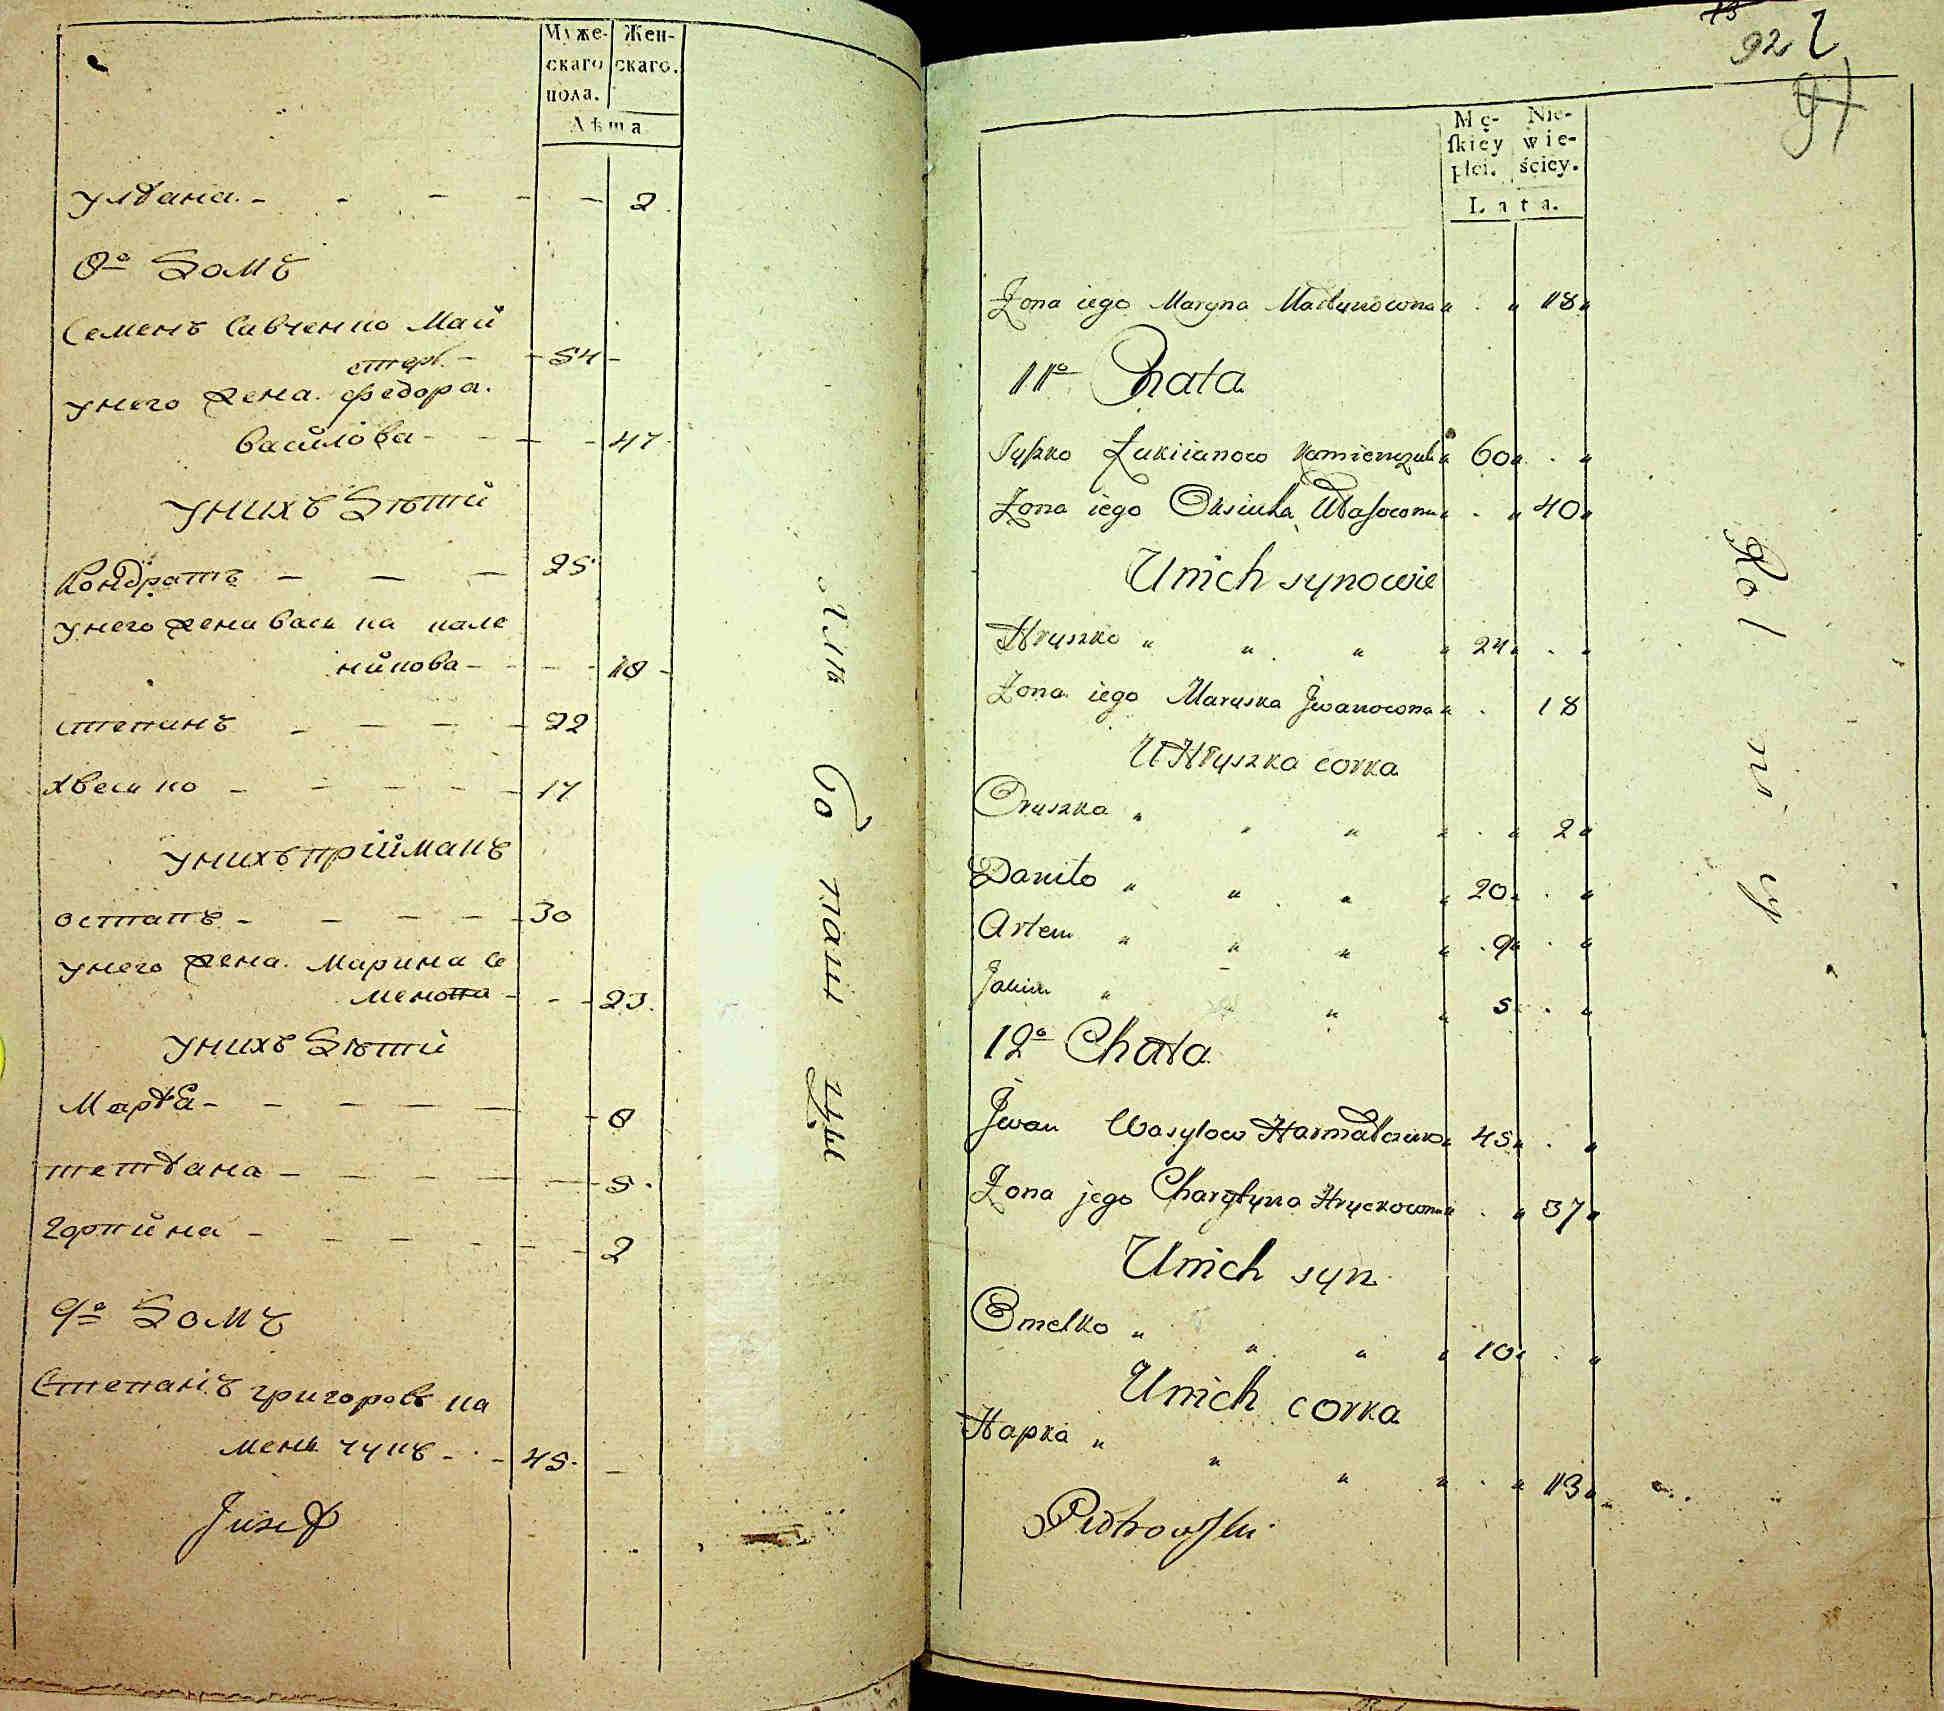 Муже-
скаго
пола.
Жен-
скаго.
Лѣта
улѣана. - - - - - 2
8º Домъ
Семенъ Савченко Май
стеръ. - 54 -
унего жена. федора.
василова - - - - 47
унихъ дѣти
Кондратъ - - - 25
унего жена васка пале
нйкова - - - - 18 -
степанъ - - - - - 22
хвесько - - - - - 17
унихъ прійманъ
остапъ - - - - - 30
унего жена. Марина Се
менова - - - 23.
унихъ дѣти
Марѣя - - - - - - 8
тетѣана - - - - - - 5.
горпйна - - - - - - 2
9º Домъ
Степанъ григоровъ ка
менчукъ - - - 45. -
Jusef
Хлѣ бо паш цы
92
Mę-
skiey
płci.
Nie-
wie-
ściey.
Lata.
Zona iego Maryna Martynowna 18
11º Chata
Syszko Łukiianow Kamienczuk 60
Zona iego Oksiuha Własowna 40
Unich synowie
Hryszko 24
Zona iego Maruska Jwanowna 18
U Hryszka corka
Oryszka 2
Daniło 20
Artem 9
Jakim 5
12º Chata
Jwan Wasylow Harmatiuk 45
Zona jego Charytyna Hryckowna 37
Unich syn
Emelko 10
Unich corka
Hapka 13
Piotrowski
Rol ni cy